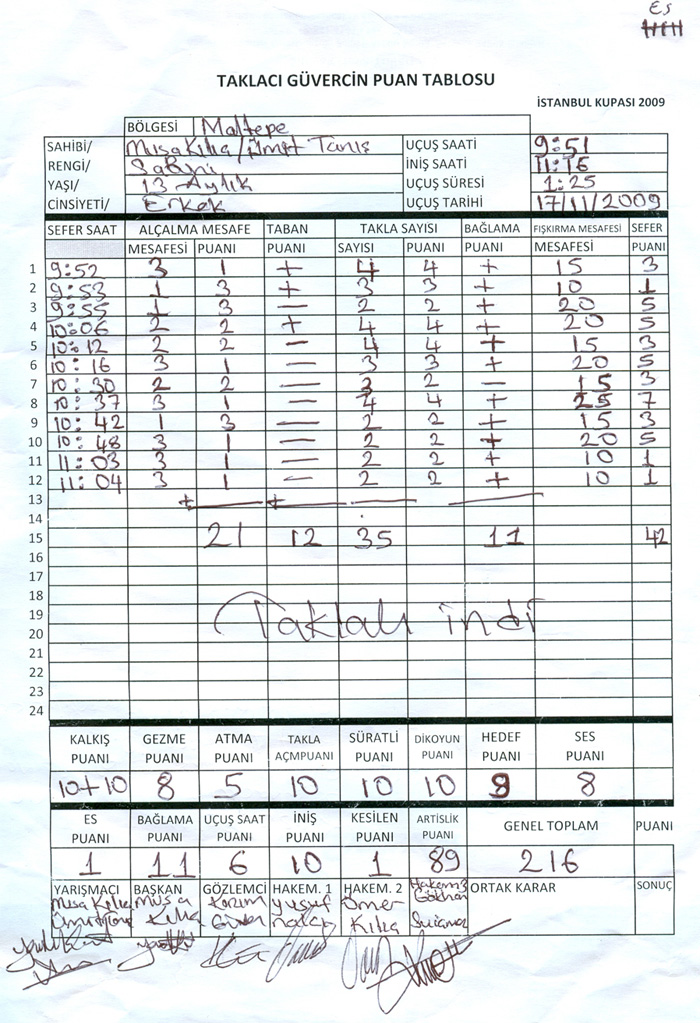 Es
TAKLACI GÜVERCİN PUAN TABLOSU
İSTANBUL KUPASI 2009
BÖLGESİ Maltepe
SAHİBİ/ Musa Kılıa/Ümit Tanış UÇUŞ SAATİ 9:51
RENGİ/ Sabuni İNİŞ SAATİ 11:16
YAŞI/ 13 Aylık UÇUŞ SÜRESİ 1:25
CİNSİYETİ/ Erkek UÇUŞ TARİHİ 17/11/2009
SEFER SAAT ALÇALMA MESAFE TABAN TAKLA SAYISI BAĞLAMA FIŞKIRMA MESAFESİ SEFER
MESAFESİ PUANI PUANI SAYISI PUANI PUANI MESAFESİ PUANI
1 9:52 3 1 + 4 4 + 15 3
2 9:53 1 3 + 3 3 + 10 1
3 9:55 1 3 — 2 2 + 20 5
4 10:06 2 2 + 4 4 + 20 5
5 10:12 2 2 — 4 4 + 15 3
6 10:16 3 1 — 3 3 + 20 5
7 10:30 2 2 — 3 2 — 15 3
8 10:37 3 1 — 4 4 + 25 7
9 10:42 1 3 — 2 2 + 15 3
10 10:48 3 1 — 2 2 + 20 5
11 11:03 3 1 — 2 2 + 10 1
12 11:04 3 1 — 2 2 + 10 1
13 + +
14
15 21 12 35 11 42
16
17
18
19 Taklalı indi
20
21
22
23
24
KALKIŞ GEZME ATMA TAKLA SÜRATLİ DİKOYUN HEDEF SES
PUANI PUANI PUANI AÇMPUANI PUANI PUANI PUANI PUANI
10+10 8 5 10 10 10 8 8
ES BAĞLAMA UÇUŞ SAAT İNİŞ KESİLEN ARTİSLİK GENEL TOPLAM PUANI
PUANI PUANI PUANI PUANI PUANI PUANI
1 11 6 10 1 89 216
YARIŞMACI BAŞKAN GÖZLEMCİ HAKEM. 1 HAKEM. 2 Hakem3 ORTAK KARAR SONUÇ
Musa Kılıa musa yusuf ömer Gökhan
Kılıa Kılıa